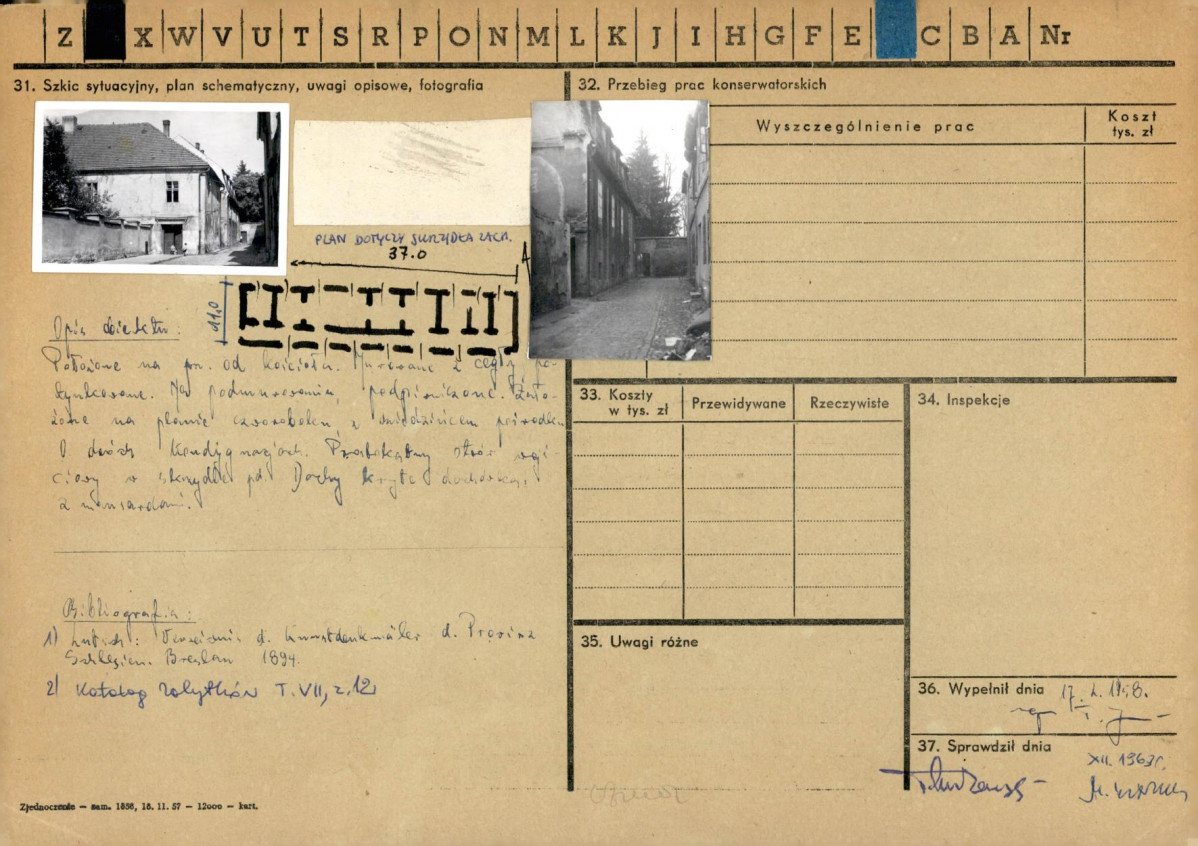 Z X W V U T S R P O N M L K J I H G F E C B A Nr
31. Szkic sytuacyjny, plan schematyczny, uwagi opisowe, fotografia
32. Przebieg prac konserwatorskich
Wyszczególnienie prac
Koszt
tys. zł
PLAN DOTYCZY SKRZYDŁA ZACH.
37.0
11,0
Opis obiektu:
Położone na pn. od kościoła. Murowane z cegły, po-
tynkowane. Na podmurowaniu, podpiwniczone. Zało-
żone na planie czworoboku, z dziedzińcem pośrodku
O dwóch kondygnacjach. Prostokątny otwór wej-
ciowy w skrzydle pd. Dachy kryte dachówką,
z mansardami.
Bibliografia:
1) Lutsch: Verzeichnis d. Kunstdenkmäler d. Provinz
Schlesien. Breslau 1894.
2) Katalog Zabytków T. VII, z. 12
33. Koszty
w tys. zł
Przewidywane
Rzeczywiste
34. Inspekcje
35. Uwagi różne
36. Wypełnił dnia
37. Sprawdził dnia
XII. 1963r.
Zjednoczenie – zam. 1858, 16. 11. 57 – 12000 – kart.